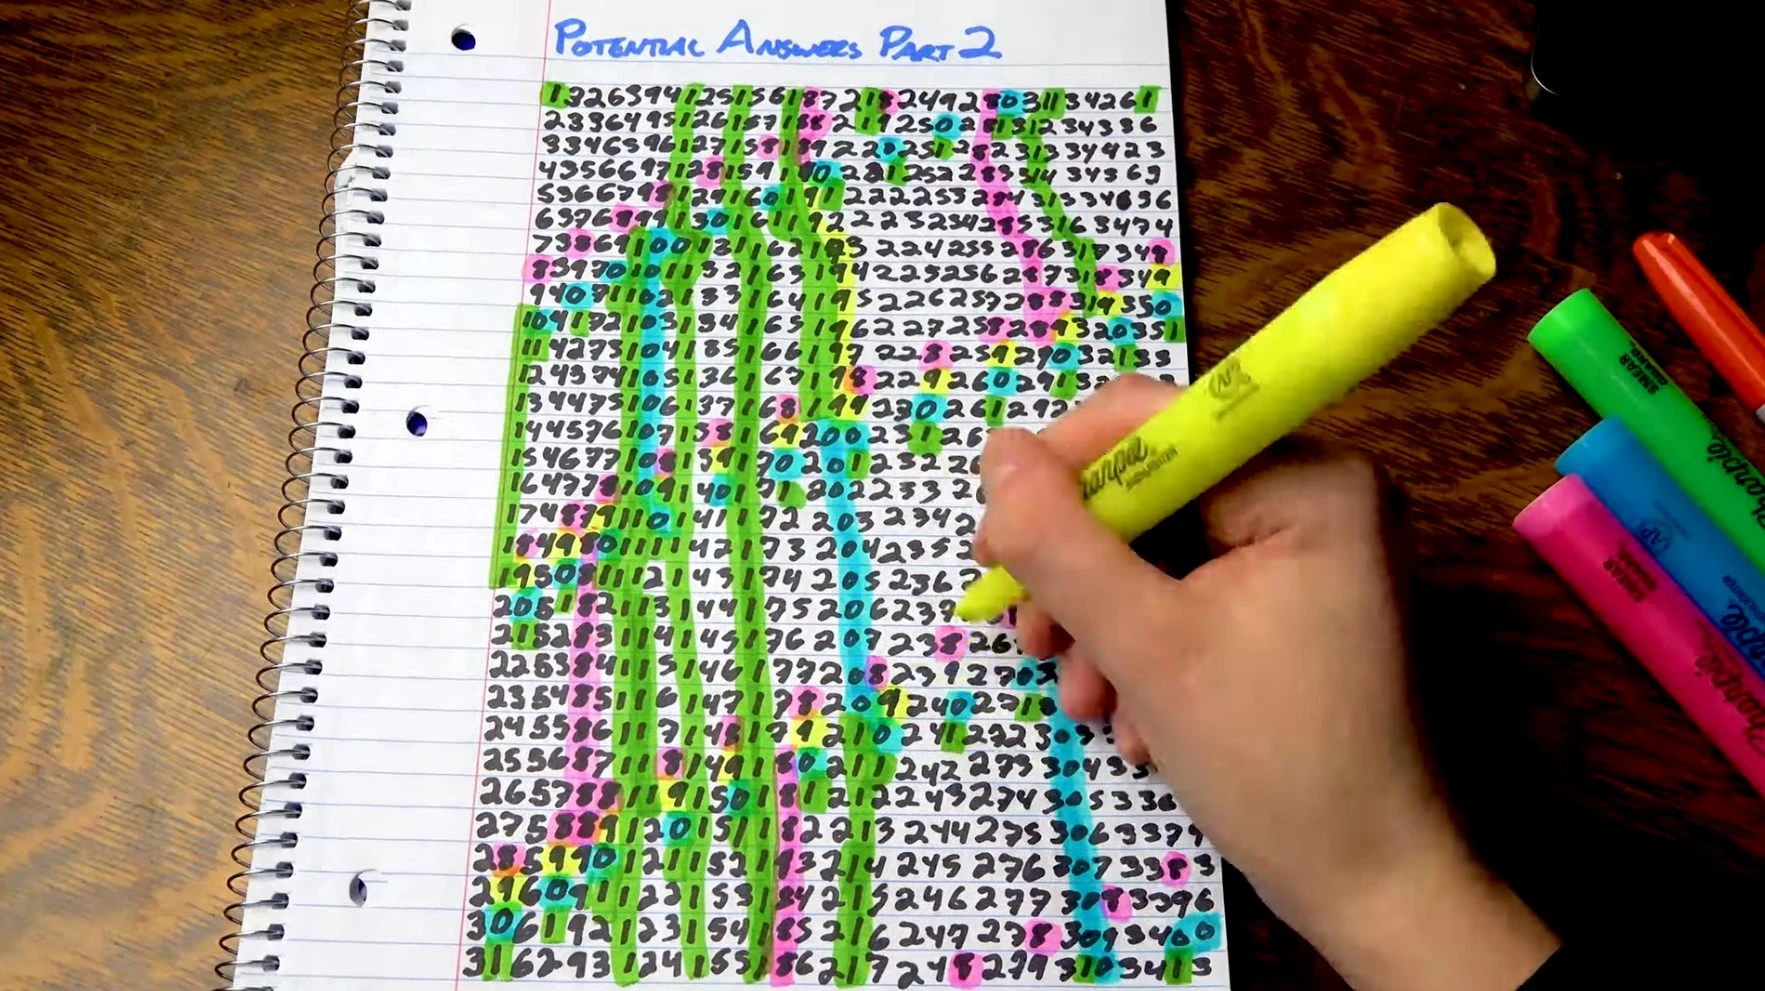 POTENTIAL ANSWERS PART 2
132639412515618721824928031134261
23364951261571882192502813123433 6
33465396127158189220251282313334423
435669712815919022125228331434569
5366798129160191222253284315334696
63768991301611922232542853163474
73869100131162193224255286317348
839701011321631942252562873 18349
94071102133164195226257288319350
104172103134165196227258289320351
11427310413516619722825929032133
124374105136167198229260291
134475106137168199230261292
14457610713816920023126
15467710813917020123226
1647781091401712022332
1748791101411722032342
1849801111421732042352
195081112143174205236
205182113144175206237
21528311414517620723826
225384115146177208239270
235485116147178209240271
245586117148179210241232303
25568711814918021124227330433
265788119150181212243274305336
2758891201511822132442753063379
2859901211521832142452763073383
2960911221531842152462773083396
3061921231541852162472783093400
3162931241551862172482793103413
Sharpie
SMEAR GUARD
SMEAR GUARD
Sharpie
Sharpie
Sharpie